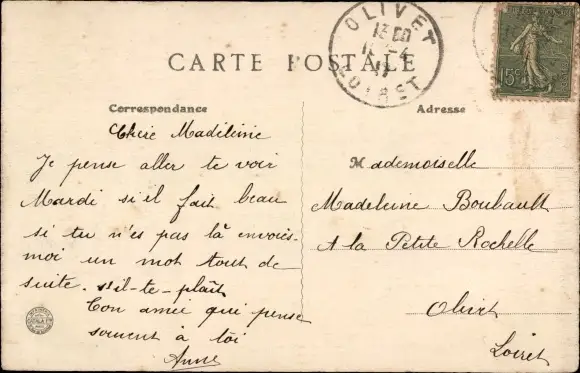 OLIVET
LOIRET
15c
CARTE POSTALE
Correspondance
Adresse
Chère Madeleine
Je pense aller te voir
Mardi s'il fait beau
si tu n'es pas là envoies-
moi un mot tout de
suite. s'il-te-plaît
Ton amie qui pense
souvent à toi
Anne
Mademoiselle
Madeleine Boubault
A la Petite Rochelle
Olivet
Loiret